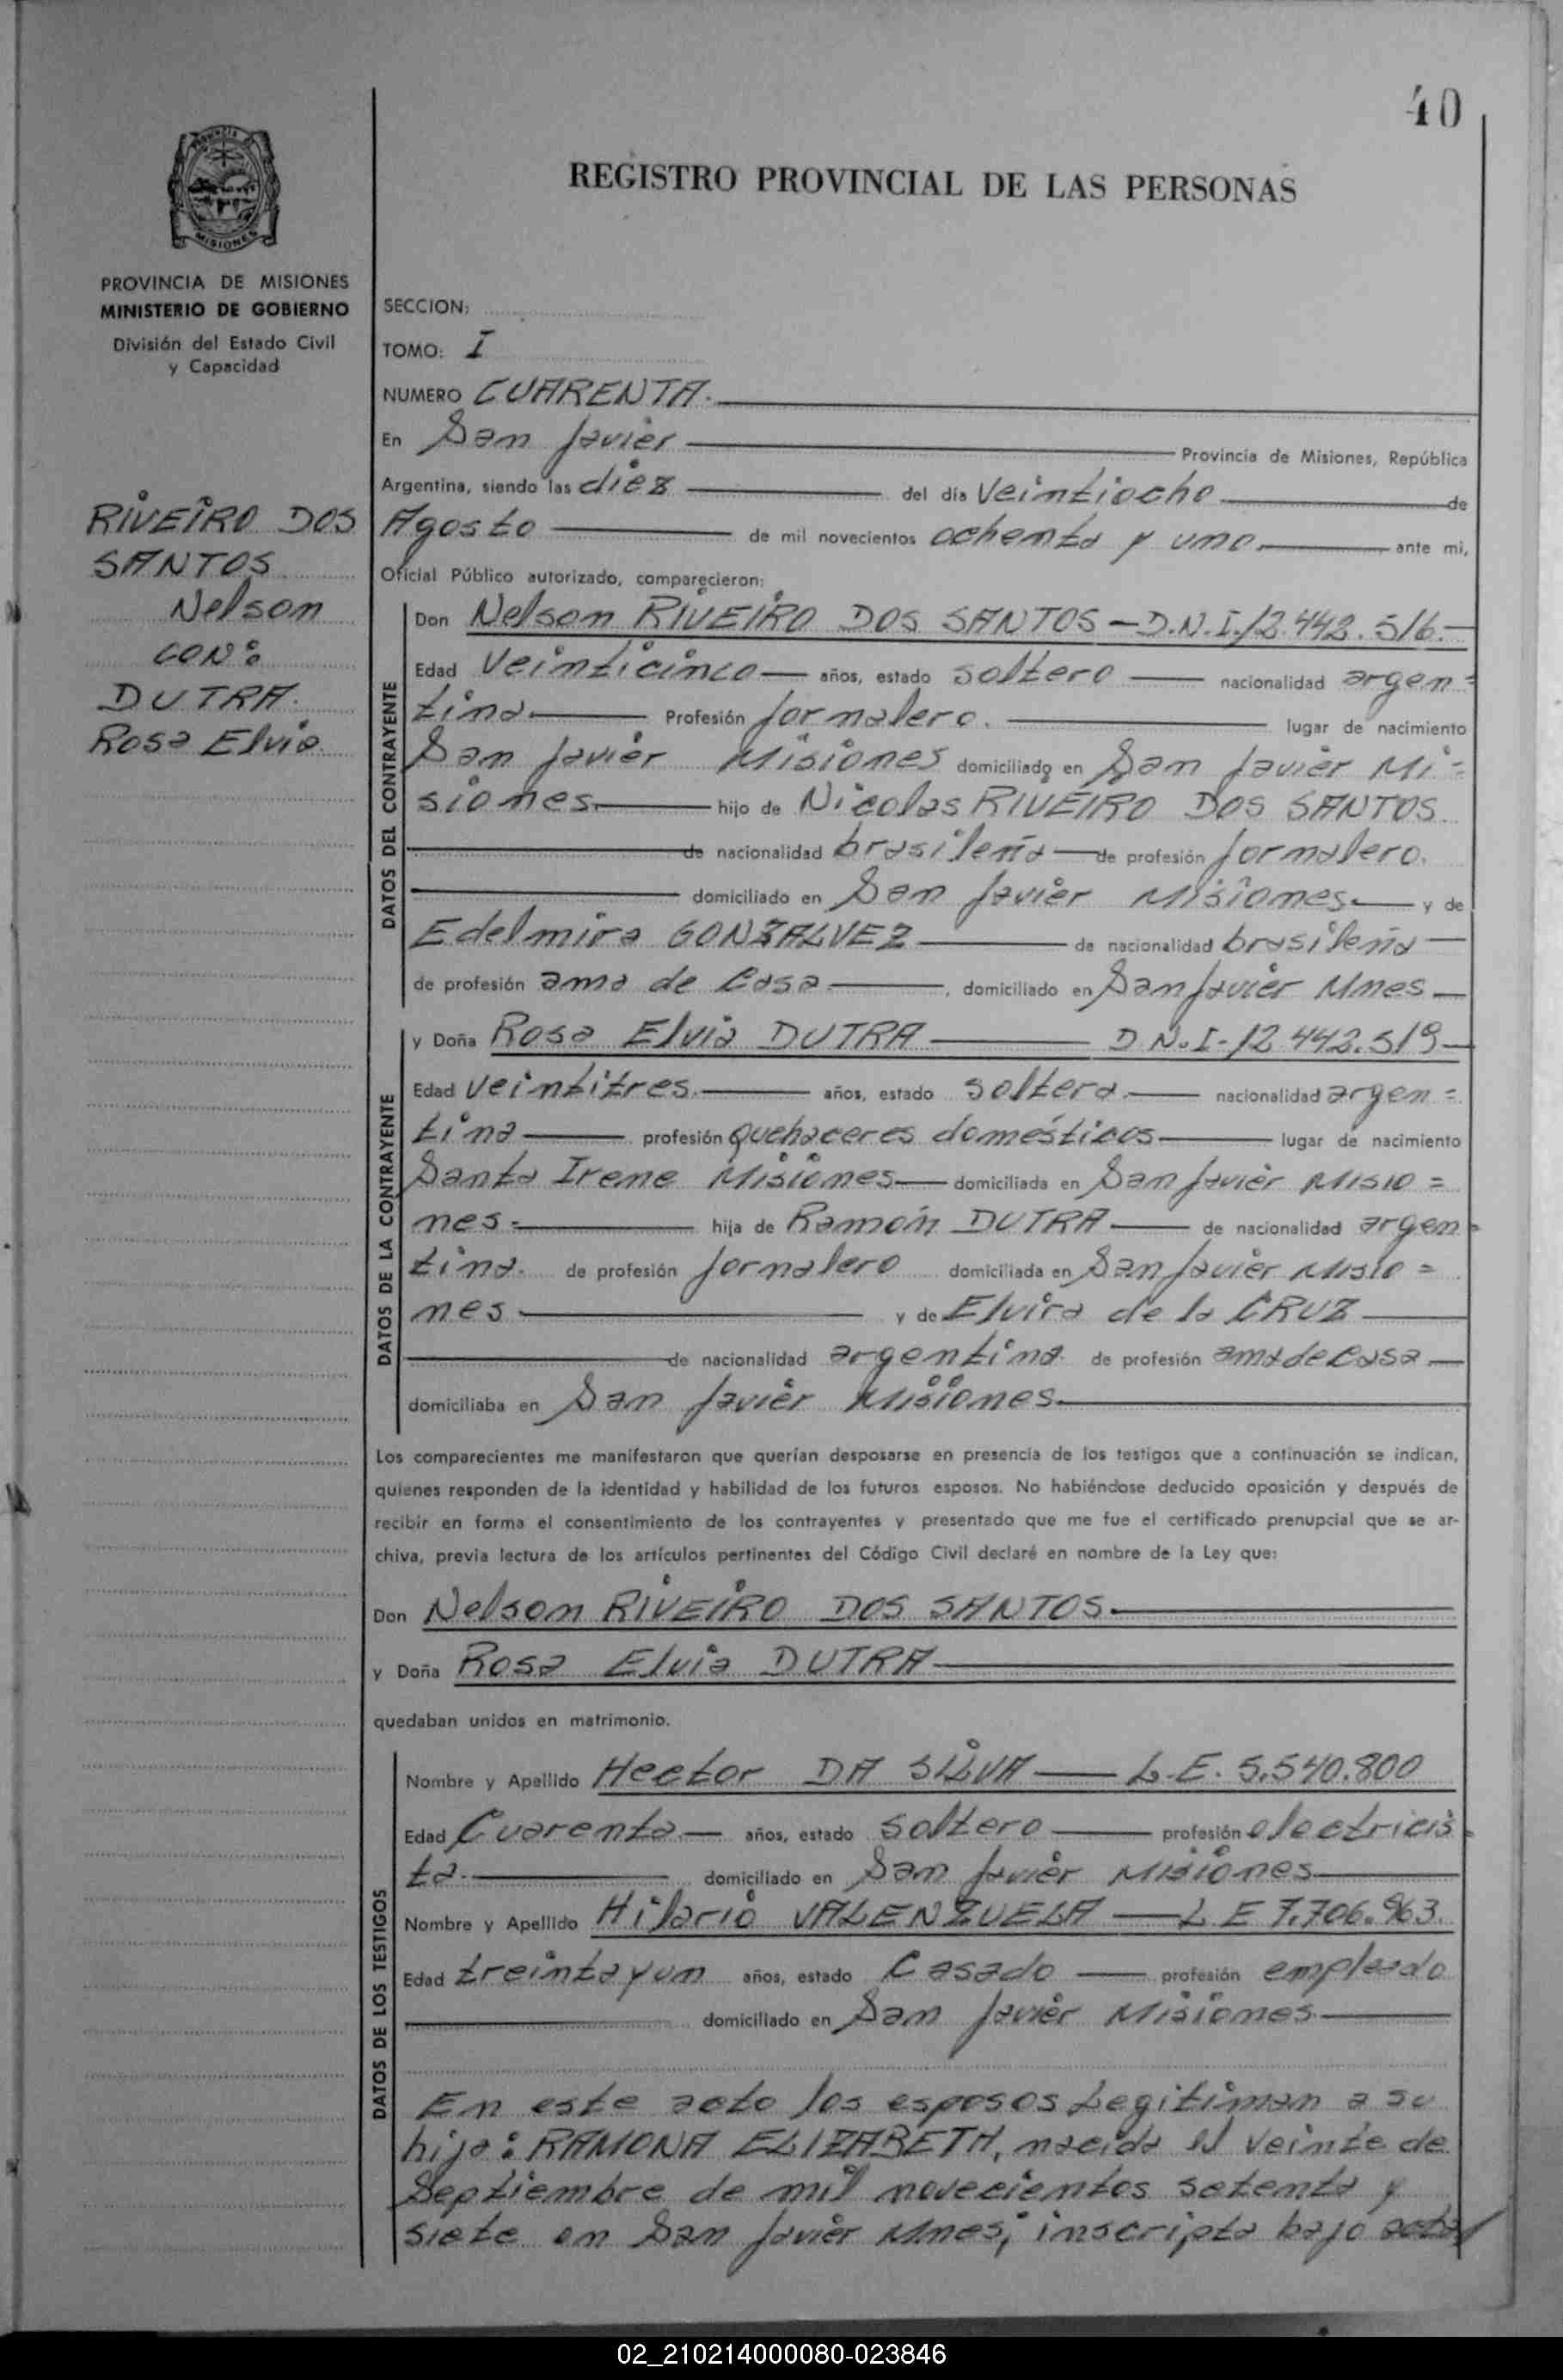 40
REGISTRO PROVINCIAL DE LAS PERSONAS
PROVINCIA DE MISIONES
MINISTERIO DE GOBIERNO
División del Estado Civil
y Capacidad
RIVEIRO DOS
SANTOS
Nelson
CON:
DUTRA.
Rosa Elvia
SECCION:
TOMO: I
NUMERO CUARENTA.
En San Javier Provincia de Misiones, República
Argentina, siendo las diez del día veintiocho de
Agosto de mil novecientos ochenta y uno. ante mi,
Oficial Público autorizado, comparecieron:
DATOS DEL CONTRAYENTE
Don Nelson RIVEIRO DOS SANTOS - D.N.I. 12.442.516.
Edad veinticinco años, estado soltero nacionalidad argen=
tina Profesión jornalero. lugar de nacimiento
San Javier Misiones domiciliado en San Javier Mi=
siones. hijo de Nicolas RIVEIRO DOS SANTOS.
de nacionalidad brasileña de profesión jornalero.
domiciliado en San Javier Misiones y de
Edelmira GONZALVEZ de nacionalidad brasileña
de profesión ama de Casa , domiciliado en San Javier Mnes
DATOS DE LA CONTRAYENTE
y Doña Rosa Elvia DUTRA D.N.I- 12.442.519
Edad veintitres. años, estado soltera. nacionalidad argen=
tina profesión quehaceres domésticos lugar de nacimiento
Santa Irene Misiones domiciliada en San Javier Misio=
nes. hija de Ramón DUTRA de nacionalidad argen=
tina. de profesión jornalero domiciliada en San Javier Misio=
nes y de Elvira de la CRUZ
de nacionalidad argentina. de profesión ama de casa
domiciliaba en San Javier Misiones.
Los comparecientes me manifestaron que querían desposarse en presencia de los testigos que a continuación se indican,
quienes responden de la identidad y habilidad de los futuros esposos. No habiéndose deducido oposición y después de
recibir en forma el consentimiento de los contrayentes y presentado que me fue el certificado prenupcial que se ar-
chiva, previa lectura de los artículos pertinentes del Código Civil declaré en nombre de la Ley que:
Don Nelson RIVEIRO DOS SANTOS.
y Doña Rosa Elvia DUTRA
quedaban unidos en matrimonio.
DATOS DE LOS TESTIGOS
Nombre y Apellido Hector DA SILVA L.E. 5.540.800
Edad Cuarenta. años, estado soltero profesión electricis=
ta. domiciliado en San Javier Misiones
Nombre y Apellido Hilario VALENZUELA L E 7.706.963.
Edad treinta y un años, estado Casado profesión empleado
domiciliado en San Javier Misiones
En este acto los esposos Legitiman a su
hija: RAMONA ELIZABETH, nacida el veinte de
Septiembre de mil novecientos setenta y
siete en San Javier Mnes; inscripta bajo acta
02_210214000080-023846